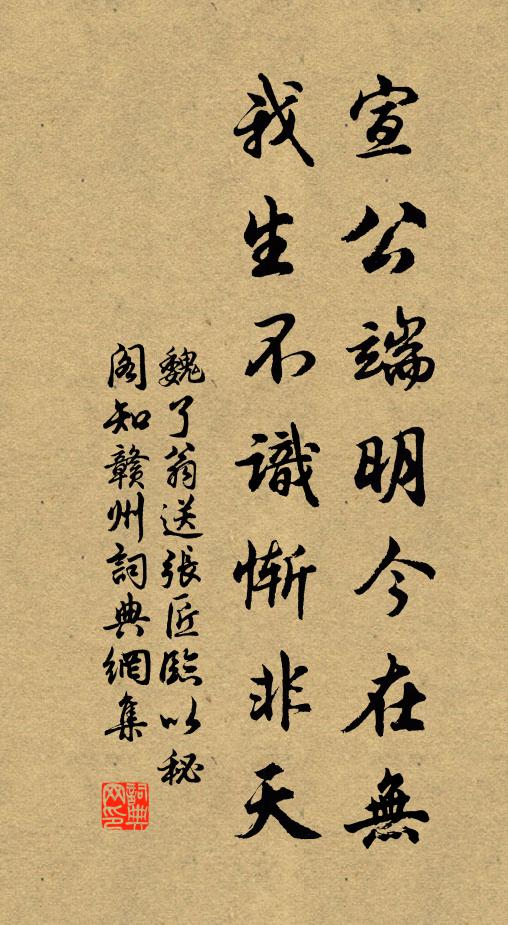 宣公端明今在無
我生不識慚非天
魏了翁送張匠臨以秘
閣知贛州詞典網集
詞典
网印